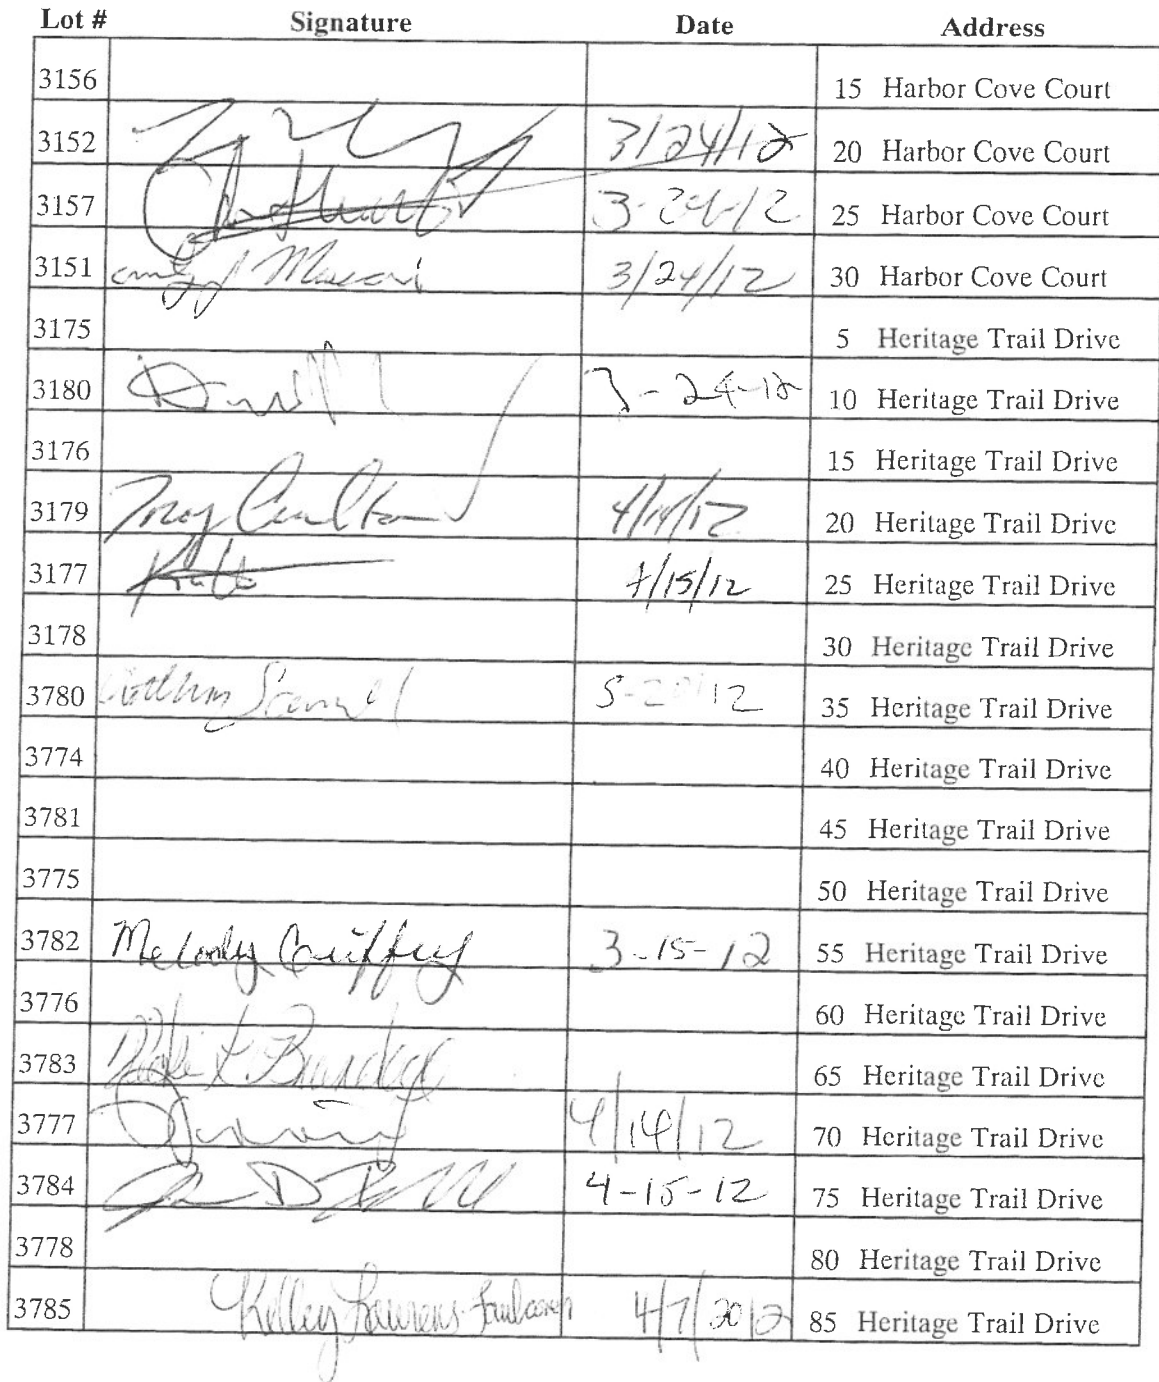 Lot # Signature Date Address
3156 15 Harbor Cove Court
3152 3/24/12 20 Harbor Cove Court
3157 3-24-12 25 Harbor Cove Court
3151 3/24/12 30 Harbor Cove Court
3175 5 Heritage Trail Drive
3180 3-24-12 10 Heritage Trail Drive
3176 15 Heritage Trail Drive
3179 Troy 4/14/12 20 Heritage Trail Drive
3177 4/15/12 25 Heritage Trail Drive
3178 30 Heritage Trail Drive
3780 35 Heritage Trail Drive
3774 40 Heritage Trail Drive
3781 45 Heritage Trail Drive
3775 50 Heritage Trail Drive
3782 Melody 3-15-12 55 Heritage Trail Drive
3776 60 Heritage Trail Drive
3783 65 Heritage Trail Drive
3777 4/14/12 70 Heritage Trail Drive
3784 4-15-12 75 Heritage Trail Drive
3778 80 Heritage Trail Drive
3785 Kelley Laurens 4/7/2012 85 Heritage Trail Drive